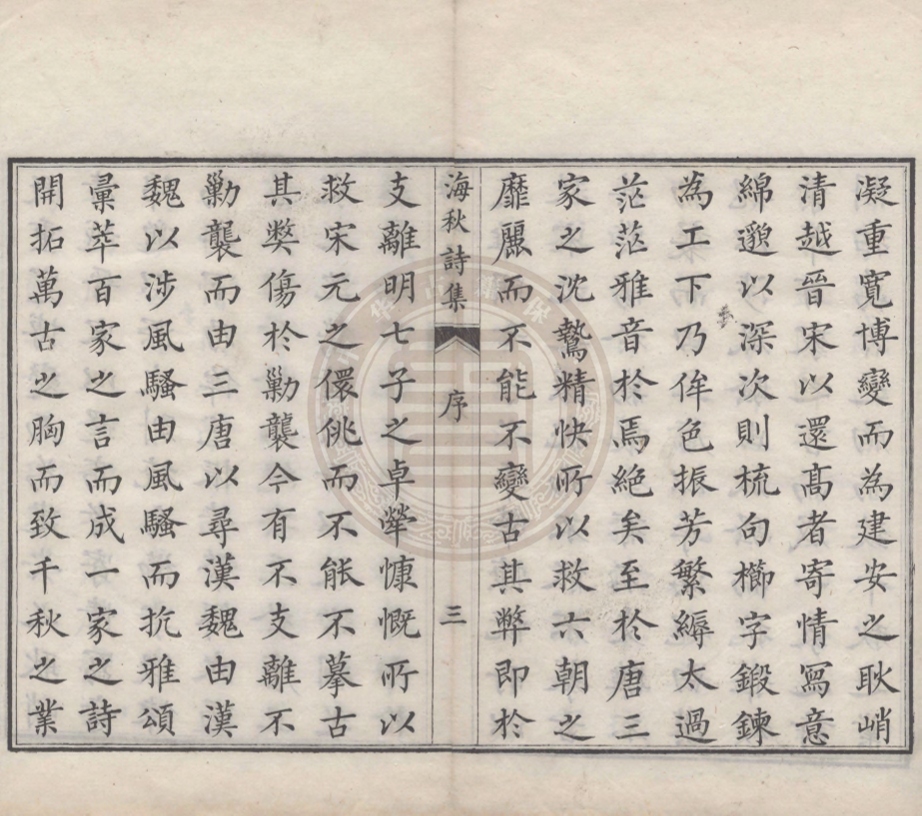 凝重寬博變而為建安之耿峭
清越晉宋以還高者寄情寫意
綿邈以深次則梳句櫛字鍛鍊
為工下乃侔色振芳繁縟太過
茫茫雅音於焉絕矣至於唐三
家之沈鷙精快所以救六朝之
靡麗而不能不變古其弊即於
海秋詩集 序 三
支離明七子之卓犖慷慨所以
救宋元之儇佻而不能不摹古
其獘傷於勦襲今有不支離不
勦襲而由三唐以尋漢魏由漢
魏以涉風騷由風騷而抗雅頌
彙萃百家之言而成一家之詩
開拓萬古之胸而致千秋之業